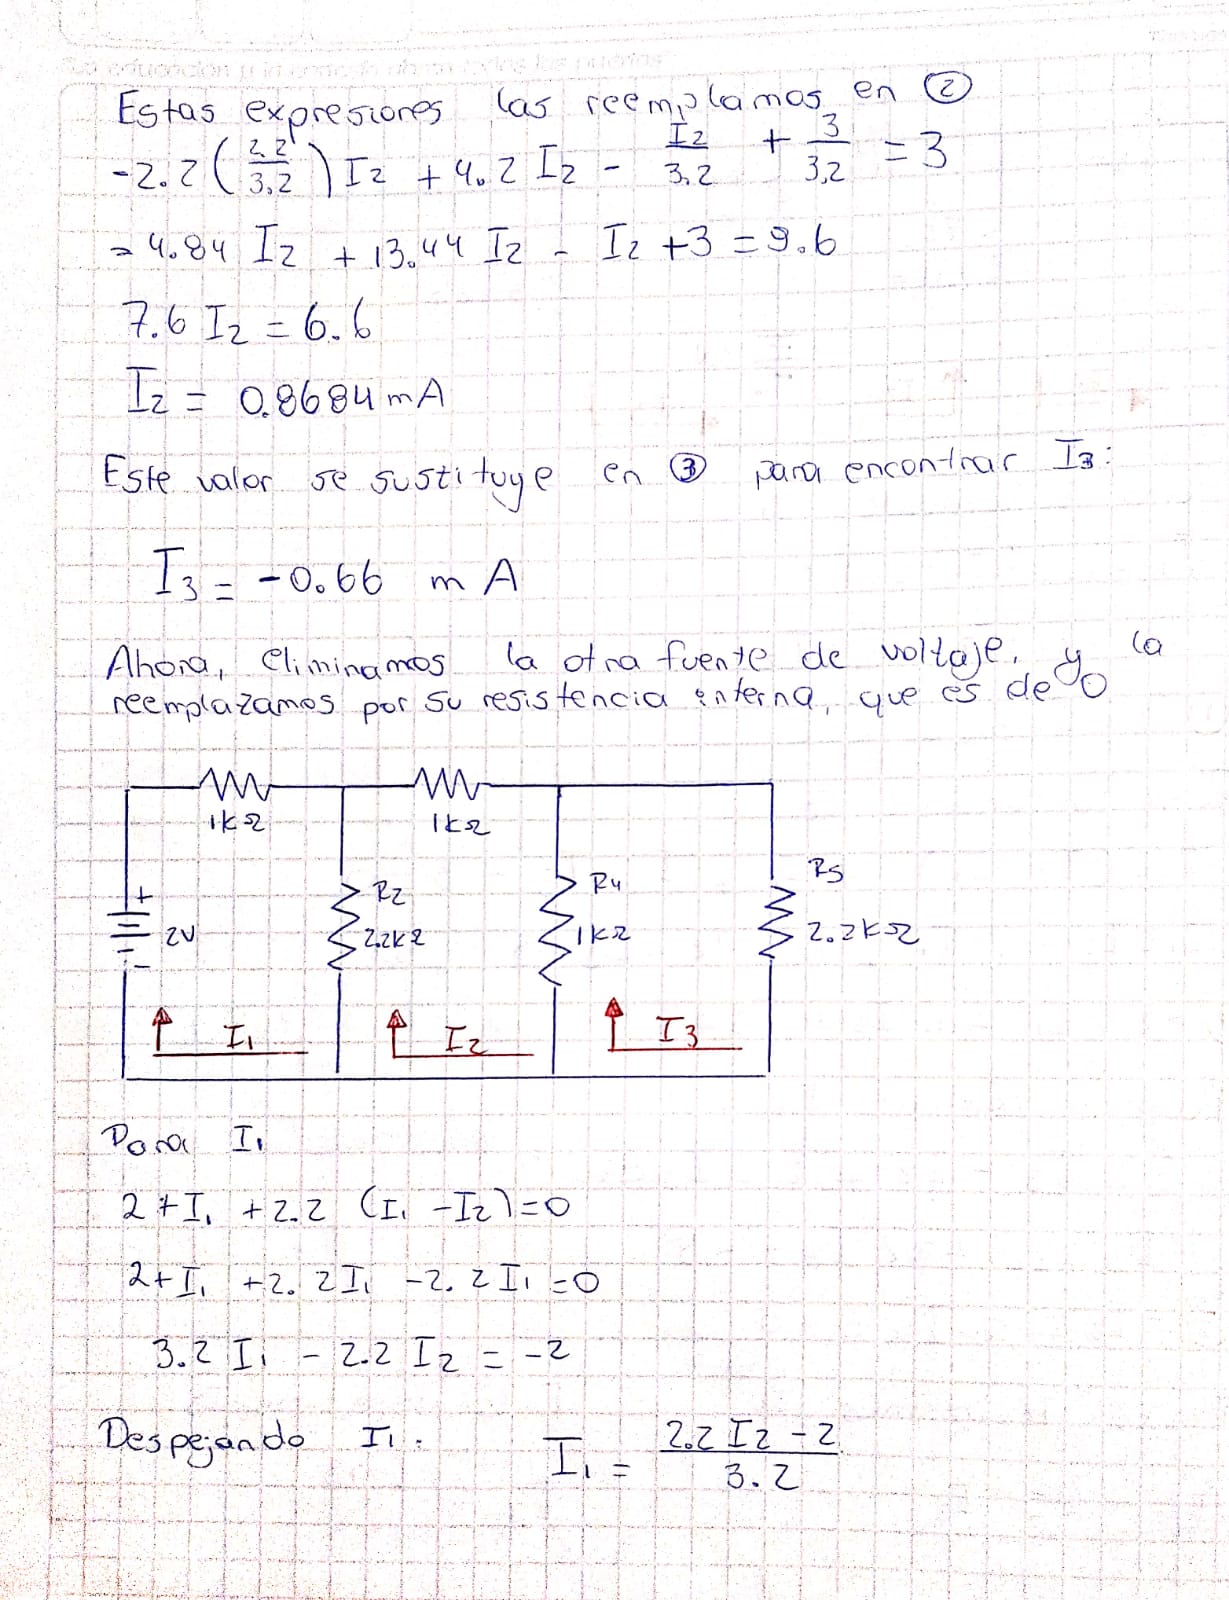 Estas expresiones las reemplamos en ②
-2.2 (2.2/3.2) I2 + 4.2 I2 - I2/3.2 + 3/3,2 = 3
- 4.84 I2 + 13.44 I2 - I2 +3 = 9.6
7.6 I2 = 6.6
I2 = 0.8684 mA
Este valor se sustituye en ③ para encontrar I3:
I3 = -0.66 mA
Ahora, eliminamos la otra fuente de voltaje, y la
reemplazamos por su resistencia interna, que es de 0
1kΩ
1kΩ
+
2V
-
R2
2.2kΩ
R4
1kΩ
R5
2.2kΩ
I1
I2
I3
Para I1
2 + I1 + 2.2 (I1 - I2) = 0
2 + I1 + 2.2 I1 - 2.2 I1 = 0
3.2 I1 - 2.2 I2 = -2
Despejando I1: I1 = (2.2 I2 - 2)/3.2